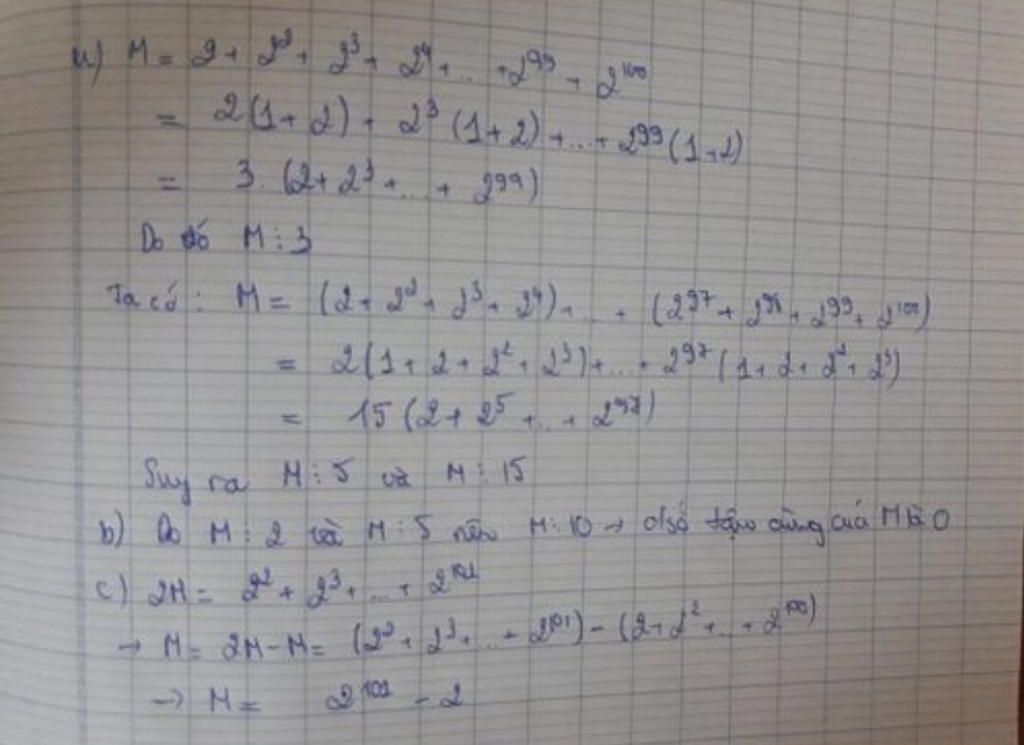 a) M = 2 + 2² + 2³ + 2⁴ + ... + 2⁹⁹ + 2¹⁰⁰
= 2(1 + 2) + 2³ (1 + 2) + ... + 2⁹⁹ (1 + 2)
= 3. (2 + 2³ + ... + 2⁹⁹)
Do đó M ⋮ 3
Ta có: M = (2 + 2² + 2³ + 2⁴) + ... + (2⁹⁷ + 2⁹⁸ + 2⁹⁹ + 2¹⁰⁰)
= 2(1 + 2 + 2² + 2³) + ... + 2⁹⁷ (1 + 2 + 2² + 2³)
= 15 (2 + 2⁵ + ... + 2⁹⁷)
Suy ra M ⋮ 5 và M ⋮ 15
b) Do M ⋮ 2 và M ⋮ 5 nên M ⋮ 10 → c/số tận cùng của M là 0
c) 2M = 2² + 2³ + ... + 2¹⁰¹
→ M = 2M - M = (2² + 2³ + ... + 2¹⁰¹) - (2 + 2² + ... + 2¹⁰⁰)
→ M = 2¹⁰¹ - 2